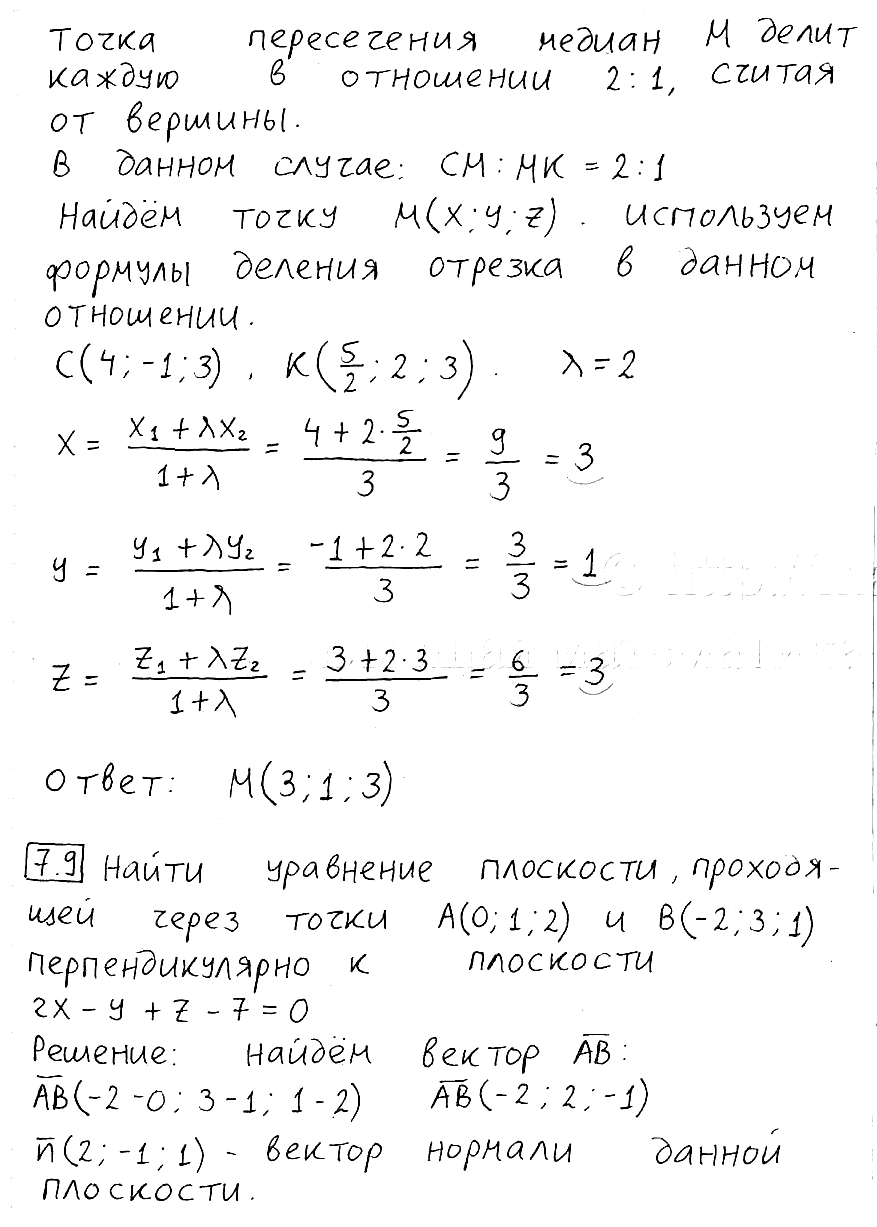 Точка пересечения медиан M делит
каждую в отношении 2:1, считая
от вершины.
В данном случае: CM : MK = 2:1
Найдём точку M(x; y; z). Используем
формулы деления отрезка в данном
отношении.
C(4; -1; 3), K(5/2; 2; 3). λ = 2
x = (x₁ + λx₂)/(1 + λ) = (4 + 2·5/2)/3 = 9/3 = 3
y = (y₁ + λy₂)/(1 + λ) = (-1 + 2·2)/3 = 3/3 = 1
z = (z₁ + λz₂)/(1 + λ) = (3 + 2·3)/3 = 6/3 = 3
Ответ: M(3; 1; 3)
7.9 Найти уравнение плоскости, проходя-
щей через точки A(0; 1; 2) и B(-2; 3; 1)
перпендикулярно к плоскости
2x - y + z - 7 = 0
Решение: Найдём вектор A̅B̅:
A̅B̅(-2 -0; 3 -1; 1 - 2) A̅B̅(-2; 2; -1)
n̅(2; -1; 1) - вектор нормали данной
плоскости.